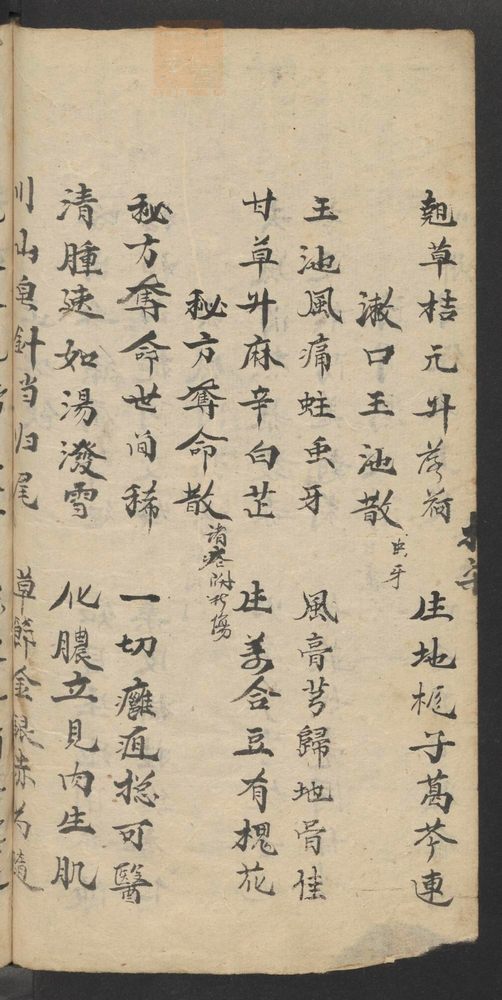 翹草桔元升薄荷 生地梔子葛芩連
漱口玉池散 虫牙
玉池風痛蛀虫牙 風膏芎歸地骨佳
甘草升麻辛白芷 生姜合豆有槐花
秘方奪命散 諸瘡附跌傷
秘方奪命世间稀 一切癰疽捴可醫
清腫速如湯潑雪 化膿立見肉生肌
川山皂針当归尾 草節金銀赤芍隨